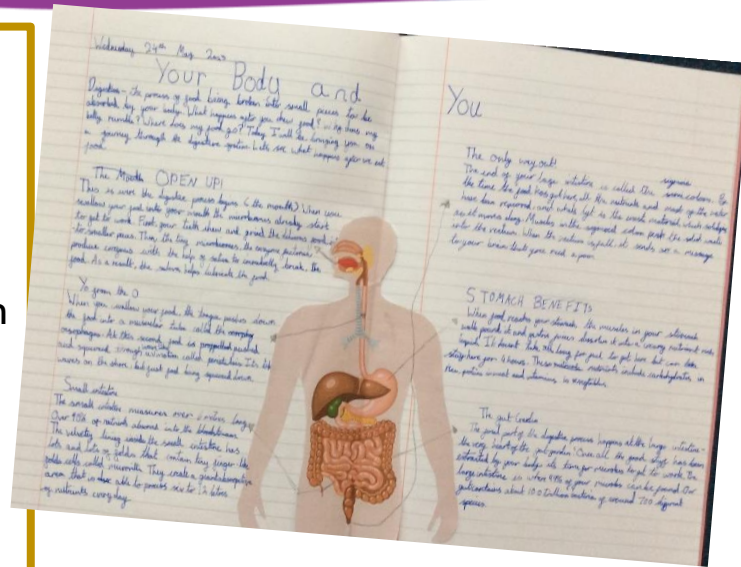 Wednesday 24th May
Your Body and
You
Digestion - the process of food being broken into small pieces to be
absorbed by your body. What happens after you chew food? Why does my
belly rumble? Where does my food go? Today I will be bringing you on
a journey through the digestive system. Lets see what happens after we eat
food.
The Mouth OPEN UP!
This is were the digestive process begins (the mouth) When you
swallow your food into your mouth the membranes already start
to get to work. First, your teeth chew and grind the
to smaller pieces. Then, the tiny membranes, the enzyme
produce with the help of saliva to break the
food. As a result, the saliva helps lubricate the food.
Yo from the O
When you swallow your food, the tongue pushes down
the food into a muscular tube called the
oesophagus. At this second, food is propelled, pushed
and squeezed through called peristalsis. It's like
waves on the shore, but just food being squeezed down.
Small intestine
The small intestine measures over 6 metres long
Over 90% of nutrients absorbed into the bloodstream
The velvety lining inside the small intestine has
lots and lots of folds that contain tiny finger like
folds called They create a
area that is able to process
of nutrients everyday.
The only way out!
sigmoid
The end of your large intestine is called the colon. By
the time the food has got here, all the nutrients and most of the water
have been removed and whats left is the waste material, which
as it moves along. Muscles in the sigmoid colon push the solid waste
into the rectum. When the rectum is full, it sends a message
to your brain that you need a poo.
STOMACH BENEFITS
When food reaches your stomach the muscles in your stomach
walls pound it and gastric juices dissolve it
liquid. It doesn't take long for food to get here but can take
stay here for 4 hours. These nutrients include carbohydrates in
protein in meat and vitamins in vegetables.
The gut Garden
The final part of the digestive process happens at the large intestine -
the very heart of the gut garden. Once all the good stuff has been
extracted by your body its time for microbes to get to work. The
large intestine is where 99% of your microbes can be found. Our
gut contains about 100 trillion bacteria of around 700 different
species.